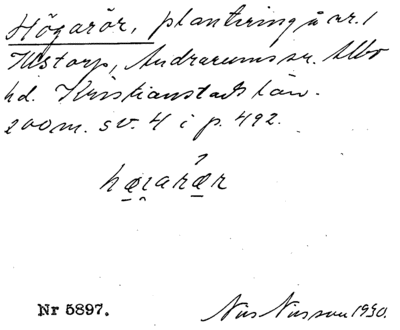 Högarör, plantering å nr. 1
Illstorp, Andrarums sn. Albo
hd. Kristianstads län.
200 m. sv. 4 i p. 492.
Nr 5897.
Nils Nilsson 1930.